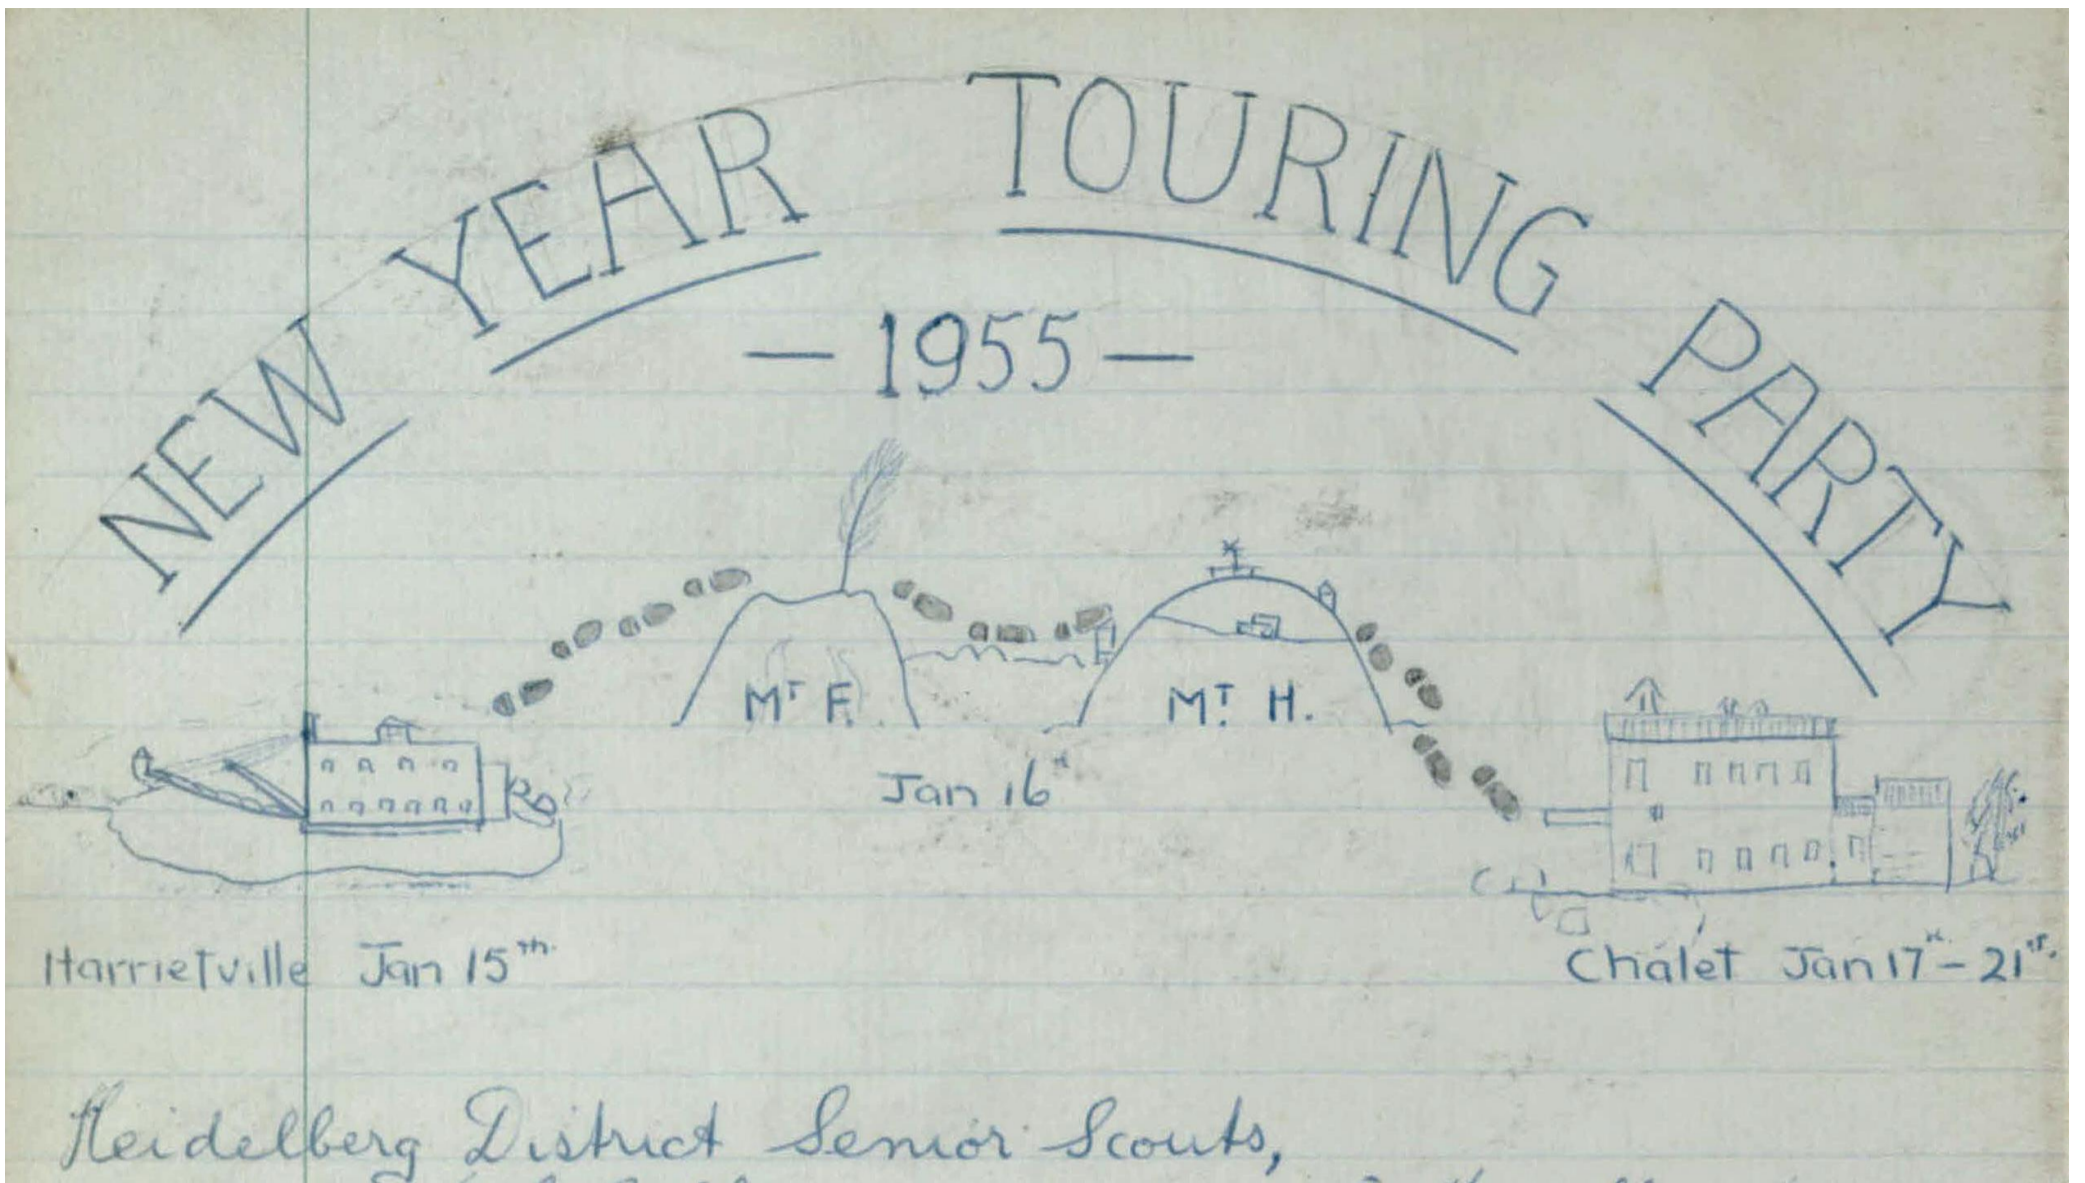 NEW YEAR TOURING PARTY
— 1955 —
MT F.
MT. H.
Jan 16th
Harrietville Jan 15th.
Chalet Jan 17th - 21st.
Heidelberg District Senior Scouts,